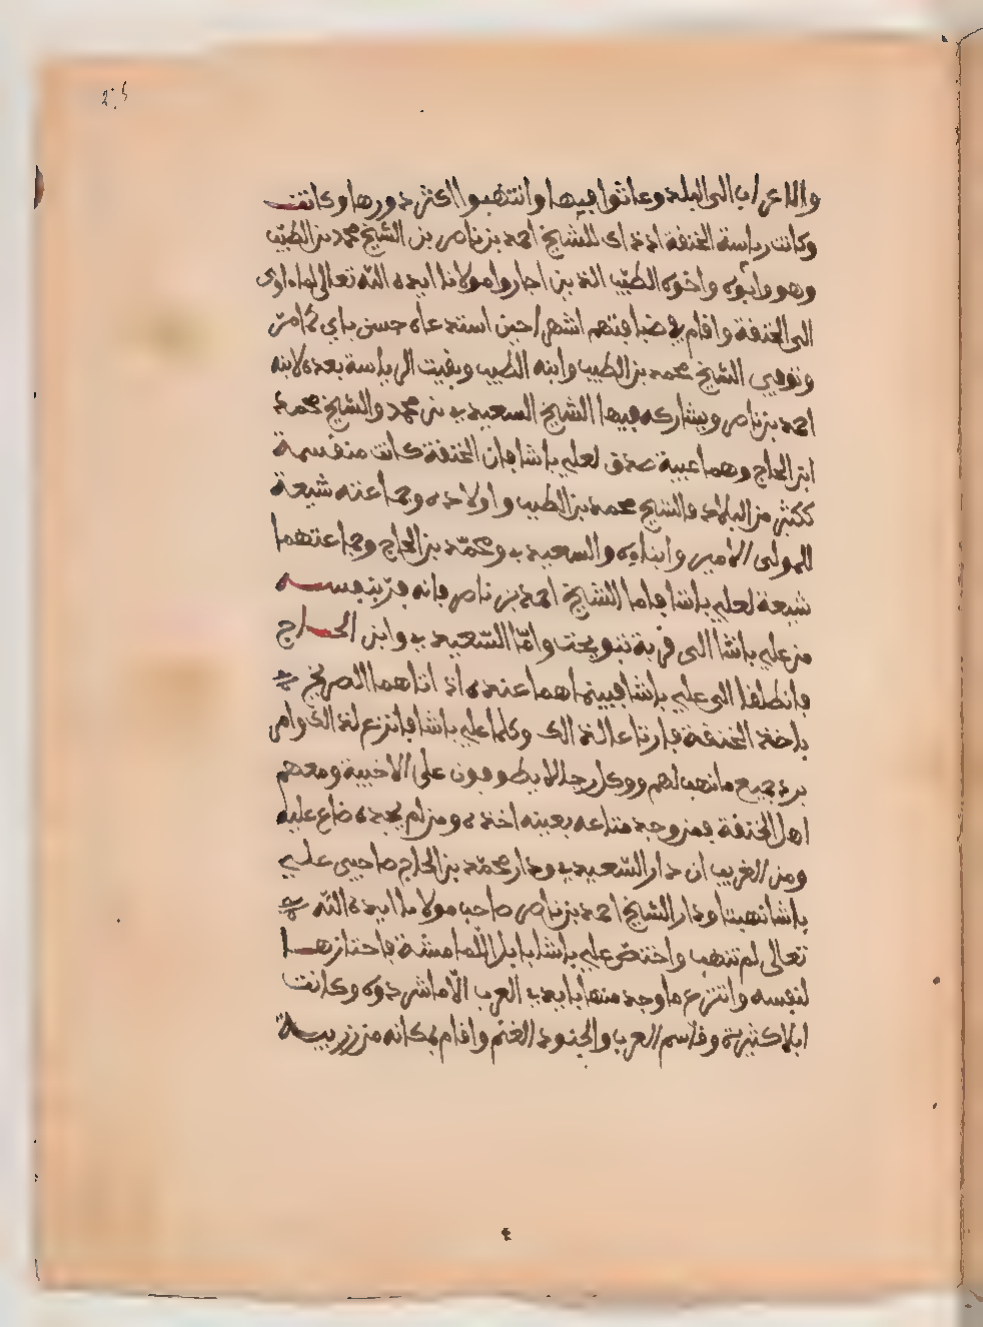 والاعراب الى البلد وعاثوا فيها وانتهبوا اكثر دورها وكانت
وكانت رياسة الخنقة اذ ذاك للشيخ احمد بن ناصر بن الشيخ محمد بن الطيب
وهو وابوه واخوه الطيب الذين اجاروا مولانا ايده الله تعالى لما اوى
الى الخنقة واقام في ضيافتهم اشهرا حين استدعاه حسن باي كما مر
وتوفي الشيخ محمد بن الطيب وابنه الطيب وبقيت الرياسة بعده لابنه
احمد بن ناصر ويشاركه فيها الشيخ السعيد بن محمد والشيخ محمد
ابن الحاج وهما عيبة صدق لعلي باشا فان الخنقة كانت منقسمة
ككثير من البلاد فالشيخ محمد بن الطيب واولاده وجماعته شيعة
للمولى الامير وابنايه والسعيد ومحمد بن الحاج وجماعتهما
شيعة لعلي باشا فاما الشيخ احمد بن ناصر فانه فر بنفسه
من علي باشا الى قرية واما السعيد وابن الحاج
فانطلقا الى علي باشا فبينما هما عنده اذ اتاهما الصريخ
باخذ الخنقة فارتاعا لذالك وكلما علي باشا فانزعج لذلك وامر
برد جميع ما نهب لهم ووكل رجالا يطوفون على الاخبية ومعهم
اهل الخنقة فمن وجد متاعه بعينه اخذه ومن لم يجده ضاع عليه
ومن الغريب ان دار السعيد ودار محمد بن الحاج صاحبي علي
باشا نهبتا ودار الشيخ احمد بن ناصر صاحب مولانا ايده الله
تعالى لم تنهب واختص علي باشا بابل اللمامشة فاحتازها
لنفسه وانتزع ما وجد منها بايدي العرب الا ما شردوه وكانت
ابلا كثيرة وقاسم العرب والجنود الغنم واقام بمكانه من زريبة